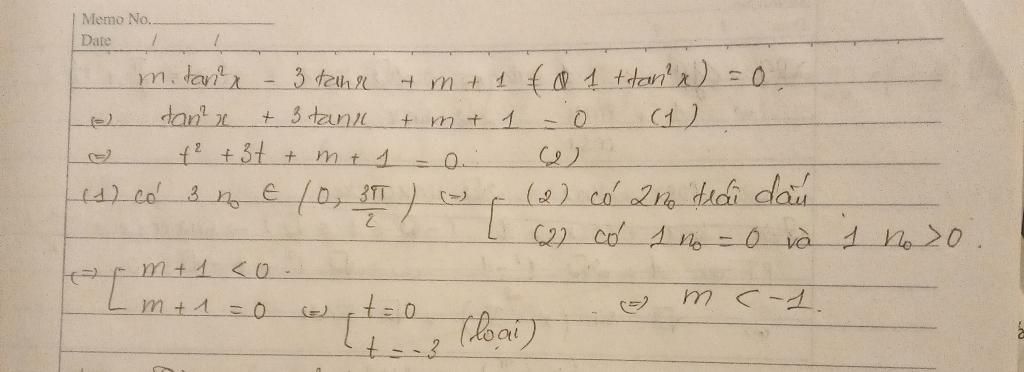 Memo No.
Date / /
m.tan²x - 3 tanx + m + 1 ( 1 + tan²x ) = 0.
(=) tan²x + 3 tanx + m + 1 = 0 (1)
(=) t² + 3t + m + 1 = 0. (2)
(1) có 3 n₀ ∈ (0, 3π/2) (=) [ (2) có 2n₀ trái dấu
(2) có 1 n₀ = 0 và 1 n₀ > 0.
(=) [ m + 1 < 0.
m + 1 = 0 (=) [ t = 0 (loại) (=) m < -1.
t = -3